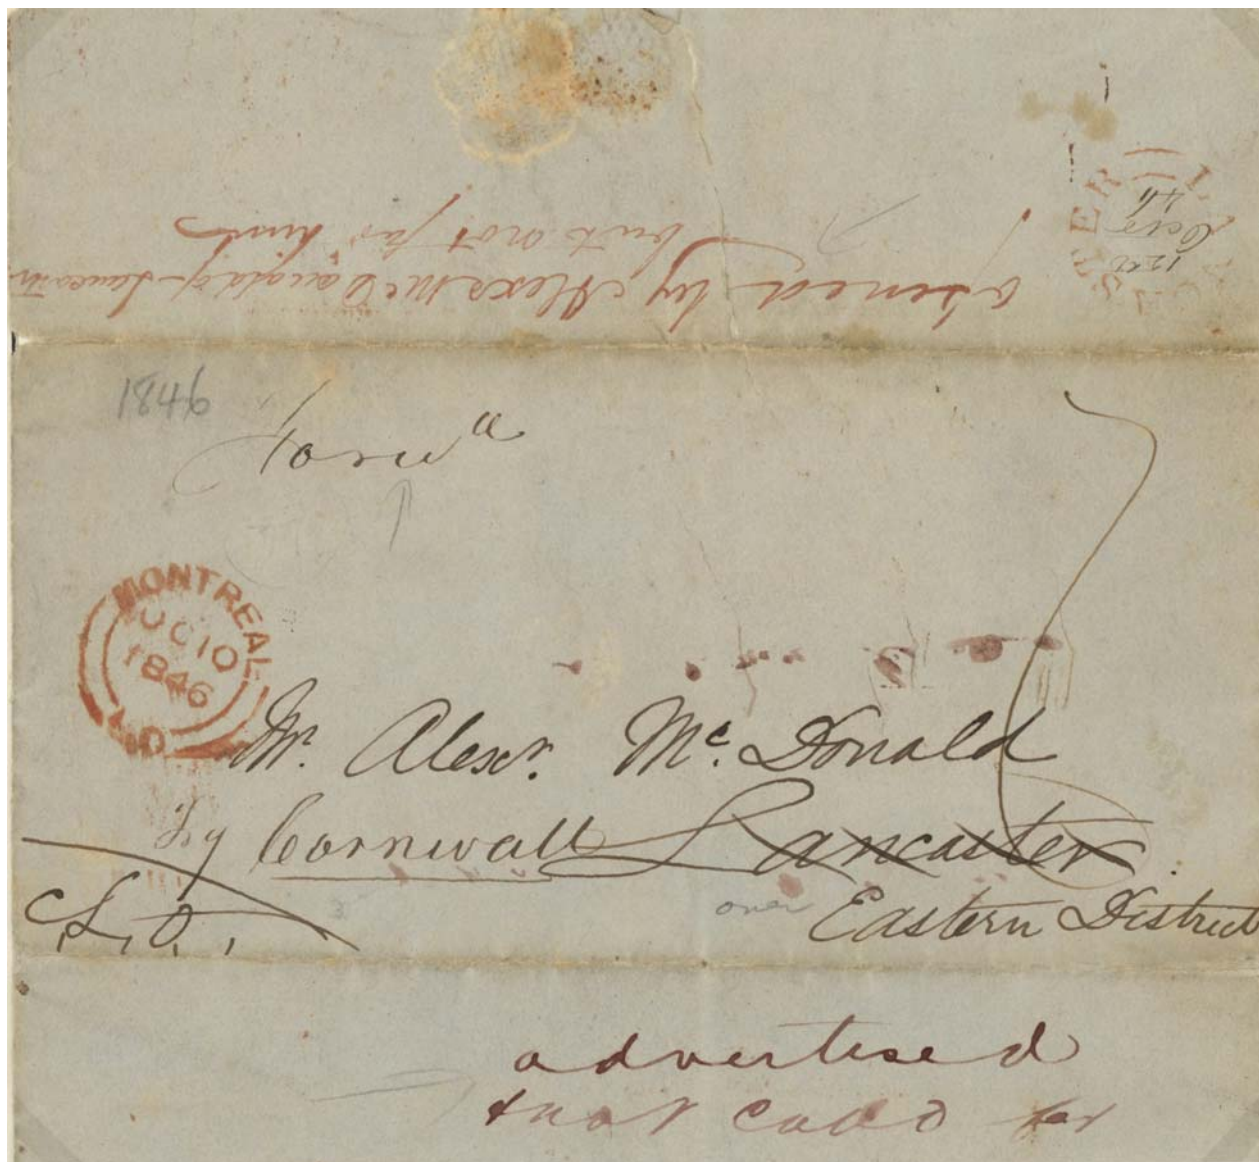 opened by Alexr McDonald of Lancaster
but not for him
LANCASTER
12th
Oct
46
1846
Forwd
MONTREAL
OC 10
1846
Mr. Alexr. McDonald
by Cornwall Lancaster
over Eastern District
advertised
& not calld for